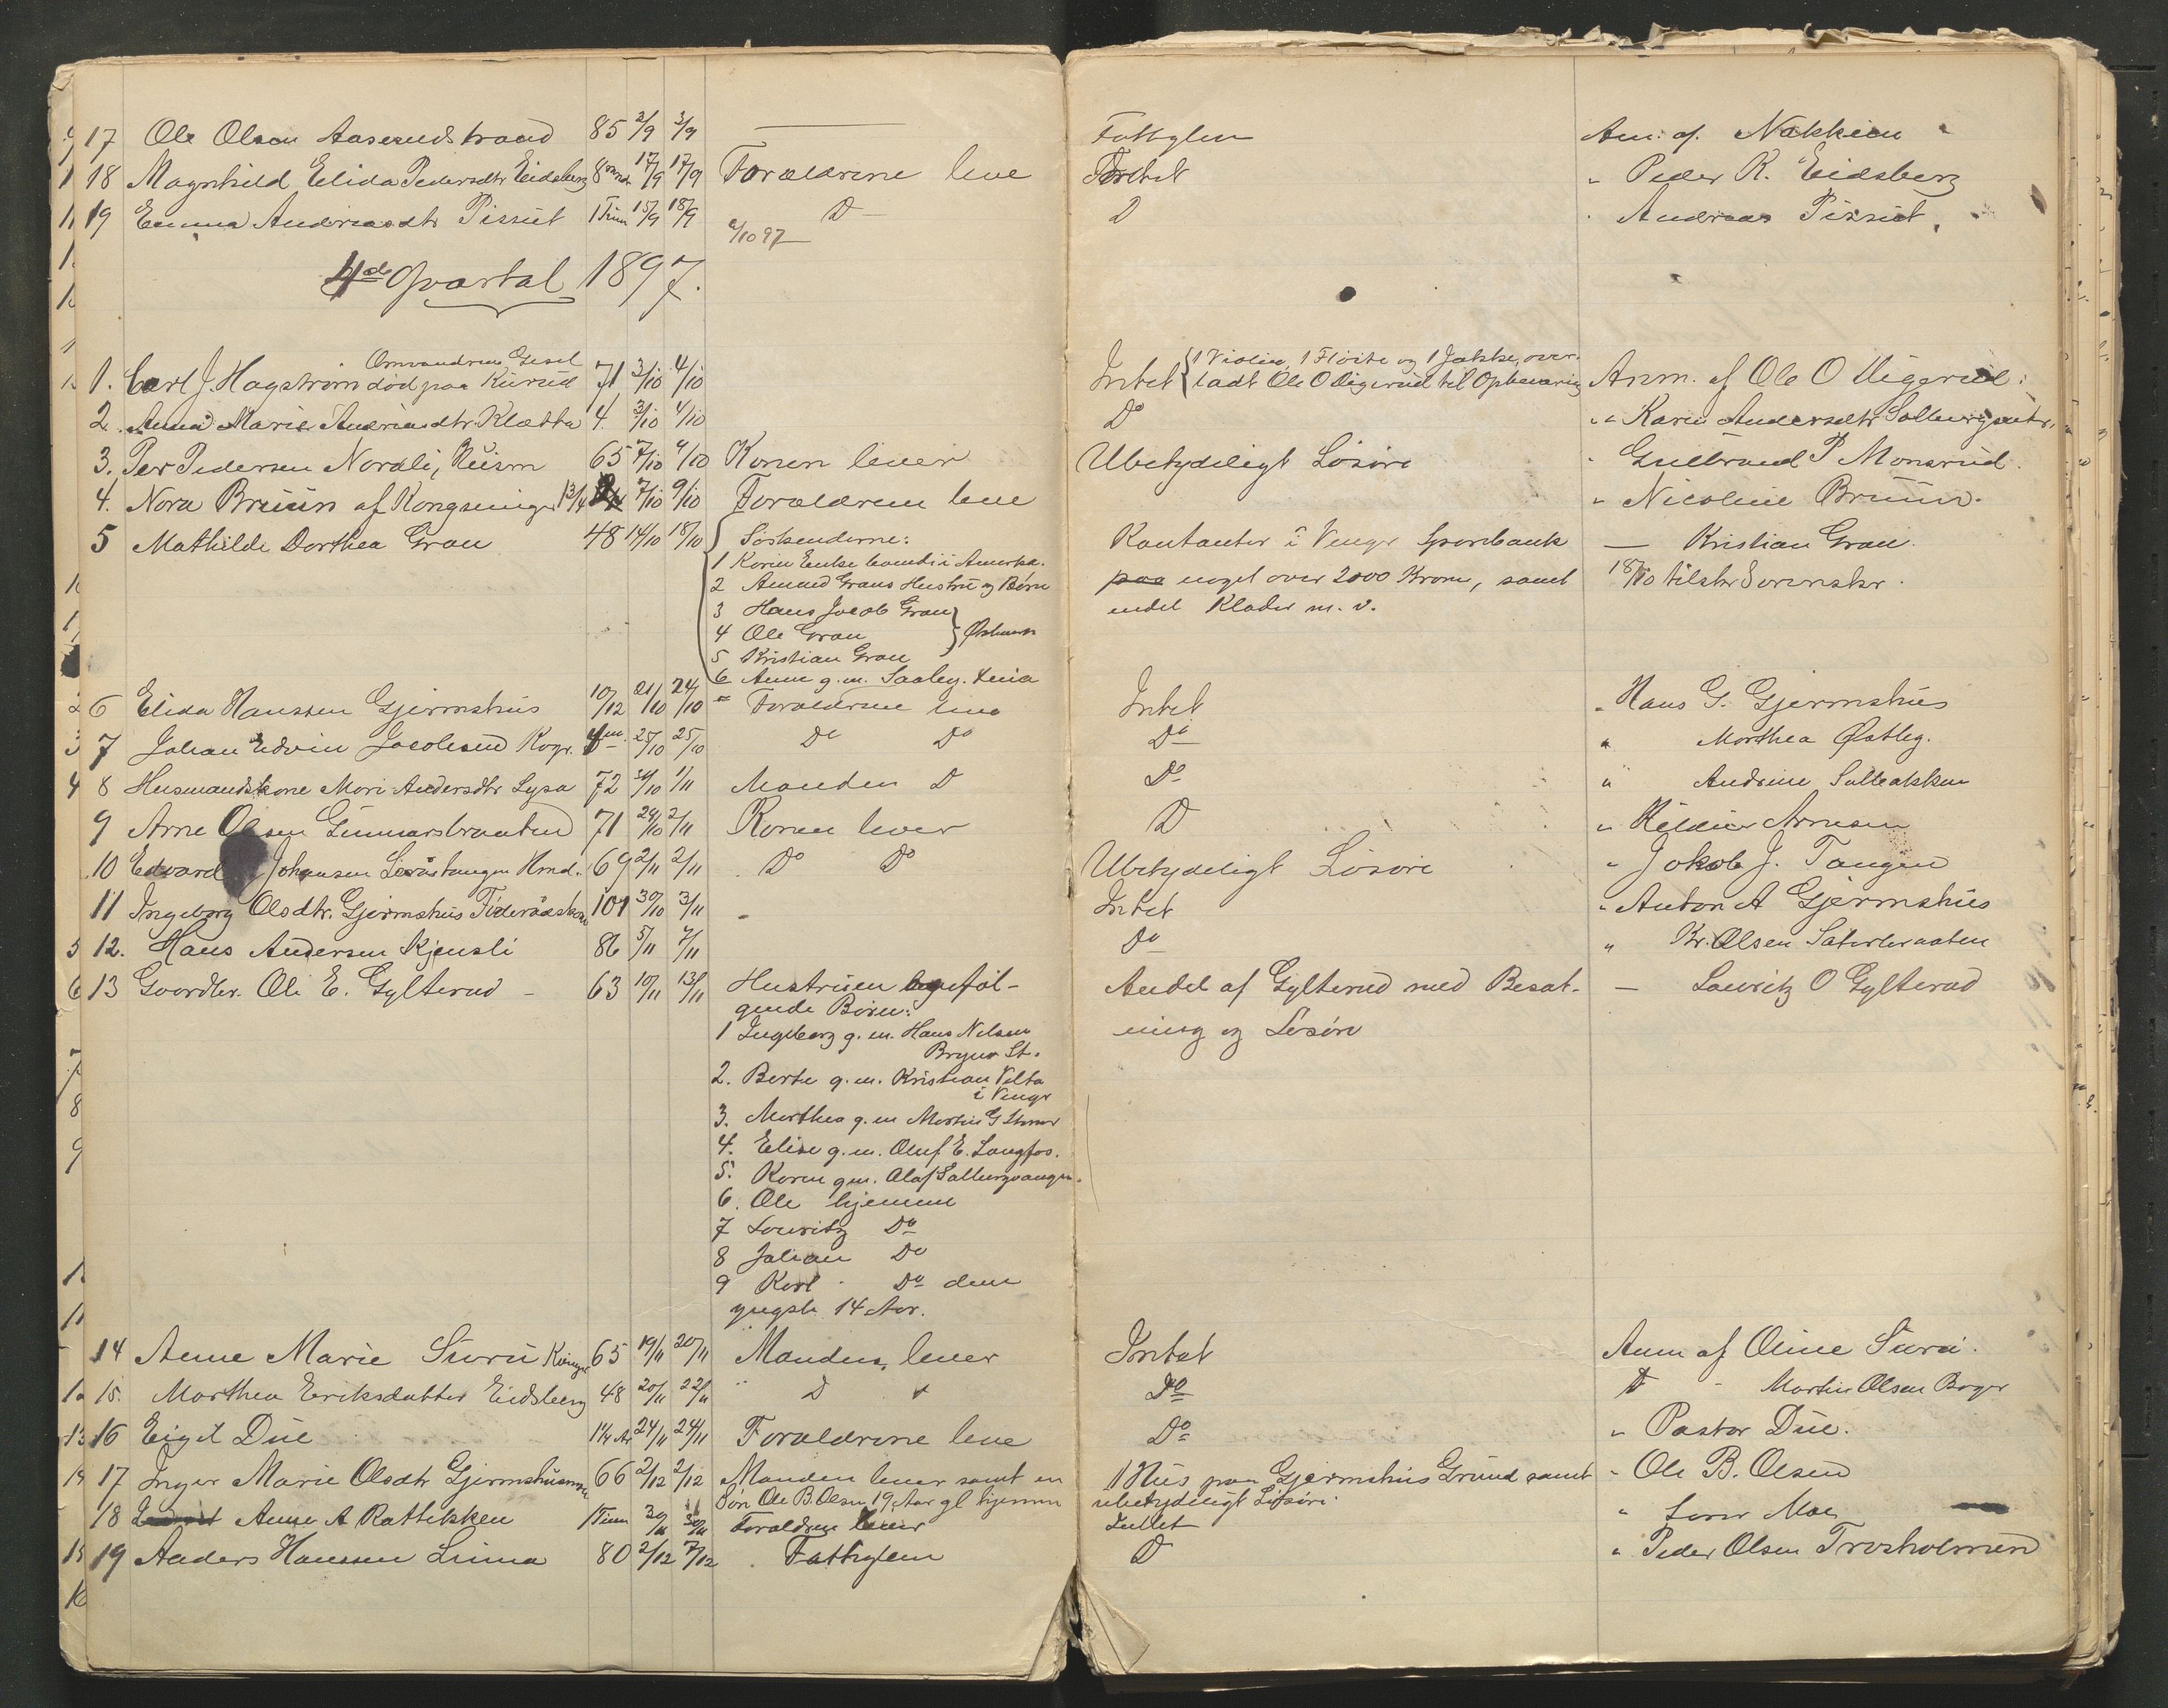 17 Ole Olsen Aaserudstraad 85 2/9 3/9 — Fattiglem Anm. af Nokkien
18 Magnhild Elida Pedersdtr Eidsberg 8 mndr 17/9 17/9 Forældrene leve Intet " Peder K. Eidsberg
19 Emma Andreasdtr Pissut 1 Time 15/9 18/9 D D " Andreas Pissut
/10 97
4de Qvartal 1897.
Omvandrene Gesel 1 Violin, 1 Fløite og 1 Jakke, over-
1. Carl J. Hagstrøm død paa Kurud 71 3/10 4/10 Intet ladt Ole O Digerud til Opbevaring Anm. af Ole O Digerud
2. Anna Marie Andreasdtr. Kletta 4 3/10 4/10 Do " Karen Andersdtr
3. Per Pedersen Nordli, Husm 65 7/10 9/10 Konen lever Ubetydeligt Løsøre " Gulbrand P Monsrud
4. Nora Bruun af Kongsvinger 1 3/4 7/10 9/10 Forældrene leve " Nicoline Bruun.
5 Mathilde Dorthea Gran 48 14/10 18/10 Søskenderne: Kontanter i Vinger Sparebank — Kristian Gran.
1 Karen Enke boende i Amerika. paa noget over 2000 Kroner, samt 18/10 tilskr Sorenskr.
2 Amund Grans Hustru og Børn endel Klæder m. v.
3 Hans Jacob Gran
4 Ole Gran
5 Kristian Gran
6 Anne g. m.
6 Elida Hanssen Gjermshus 10/12 21/10 24/10 Forældrene leve Intet " Hans G. Gjermshus
7 Johan Edvin Jacobsen Rogn. 25/10 25/10 Do Do Do " Marthea Østby.
8 Husmandskone Mari Andersdtr Lysa 72 /10 1/11 Manden D Do " Andrine
9 Arne Olsen Gunnarsbraaten 71 29/10 2/11 Konen lever D " Arnesen
10 Edvard Johansen Hmd. 69 2/11 2/11 Do Do Ubetydeligt Løsøre " Jokob J. Tangen
11 Ingeborg Olsdtr. Gjermshus Føderaadskone 101 30/10 3/11 - Intet " Anton A Gjermshus
12. Hans Andersen Kjensli 86 5/11 7/11 Do " Kr. Olsen Sæterbraaten
13 Gaardbr. Ole E. Gylterud - 63 10/11 13/11 Hustruen og føl- Andel af Gylterud med Besæt- — Lauritz O Gylterud
gende Børn: ning og Løsøre
1 Ingeborg g. m. Hans Nilsen
Bryns St.
2. Berte g. m. Kristian Velta
i Vinger
3. Marthea g. m Martin G
4. Elise g. m. Oluf E. Langfos.
5. Karen g m. Olaf
6. Ole hjemme
7 Lauritz Do
8 Julian Do
9 Karl Do den
yngste 14 Aar.
14 Anne Marie Suru 65 19/11 20/11 Manden lever Intet Anm af Oline Suru.
15. Marthea Eriksdatter Eidsberg 48 20/11 22/11 " D Do D - Martin Olsen Roger
16 Eigil Due 1 1/4 Ar 24/11 24/11 Forældrene leve Do " Pastor Due.
17 Inger Marie Olsdtr Gjermshus 66 2/12 2/12 Manden lever samt en 1 Hus paa Gjermshus Grund samt " Ole B. Olsen
Søn Ole B. Olsen 19 Aar gl hjemme ubetydeligt Løsøre.
18 Anne A Rottikken 1 Time 30/11 30/11 Forældrene lever Intet " Moe
19 Anders Hanssen Linna 80 2/12 7/12 Fattiglem D " Peder Olsen Trosholmen